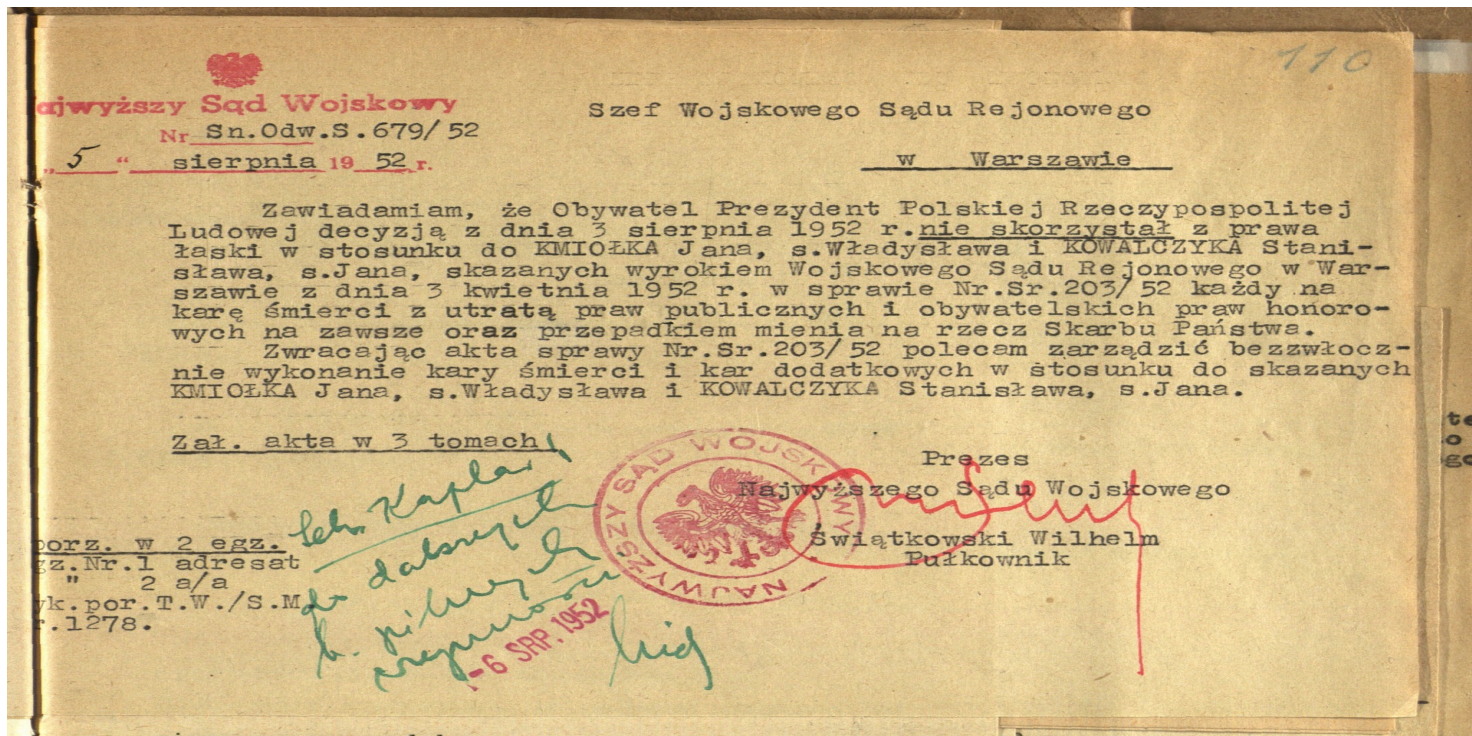 110
ajwyższy Sąd Wojskowy
Nr Sn.Odw.S.679/52
„5“ sierpnia 1952 r.
Szef Wojskowego Sądu Rejonowego
w Warszawie
Zawiadamiam, że Obywatel Prezydent Polskiej Rzeczypospolitej
Ludowej decyzją z dnia 3 sierpnia 1952 r.nie skorzystał z prawa
łaski w stosunku do KMIOŁKA Jana, s.Władysława i KOWALCZYKA Stani-
sława, s.Jana, skazanych wyrokiem Wojskowego Sądu Rejonowego w War-
szawie z dnia 3 kwietnia 1952 r. w sprawie Nr.Sr.203/52 każdy na
karę śmierci z utratą praw publicznych i obywatelskich praw honoro-
wych na zawsze oraz przepadkiem mienia na rzecz Skarbu Państwa.
Zwracając akta sprawy Nr.Sr.203/52 polecam zarządzić bezzwłocz-
nie wykonanie kary śmierci i kar dodatkowych w stosunku do skazanych
KMIOŁKA Jana, s.Władysława i KOWALCZYKA Stanisława, s.Jana.
Zał. akta w 3 tomach
Prezes
Najwyższego Sądu Wojskowego
Świątkowski Wilhelm
Pułkownik
NAJWYŻSZY SĄD WOJSKOWY
porz. w 2 egz.
gz.Nr.1 adresat
" 2 a/a
yk.por.T.W./S.M.
r.1278.
Kaplan
do dalszych
b. pilnych
-6 SRP. 1952
te
o
go